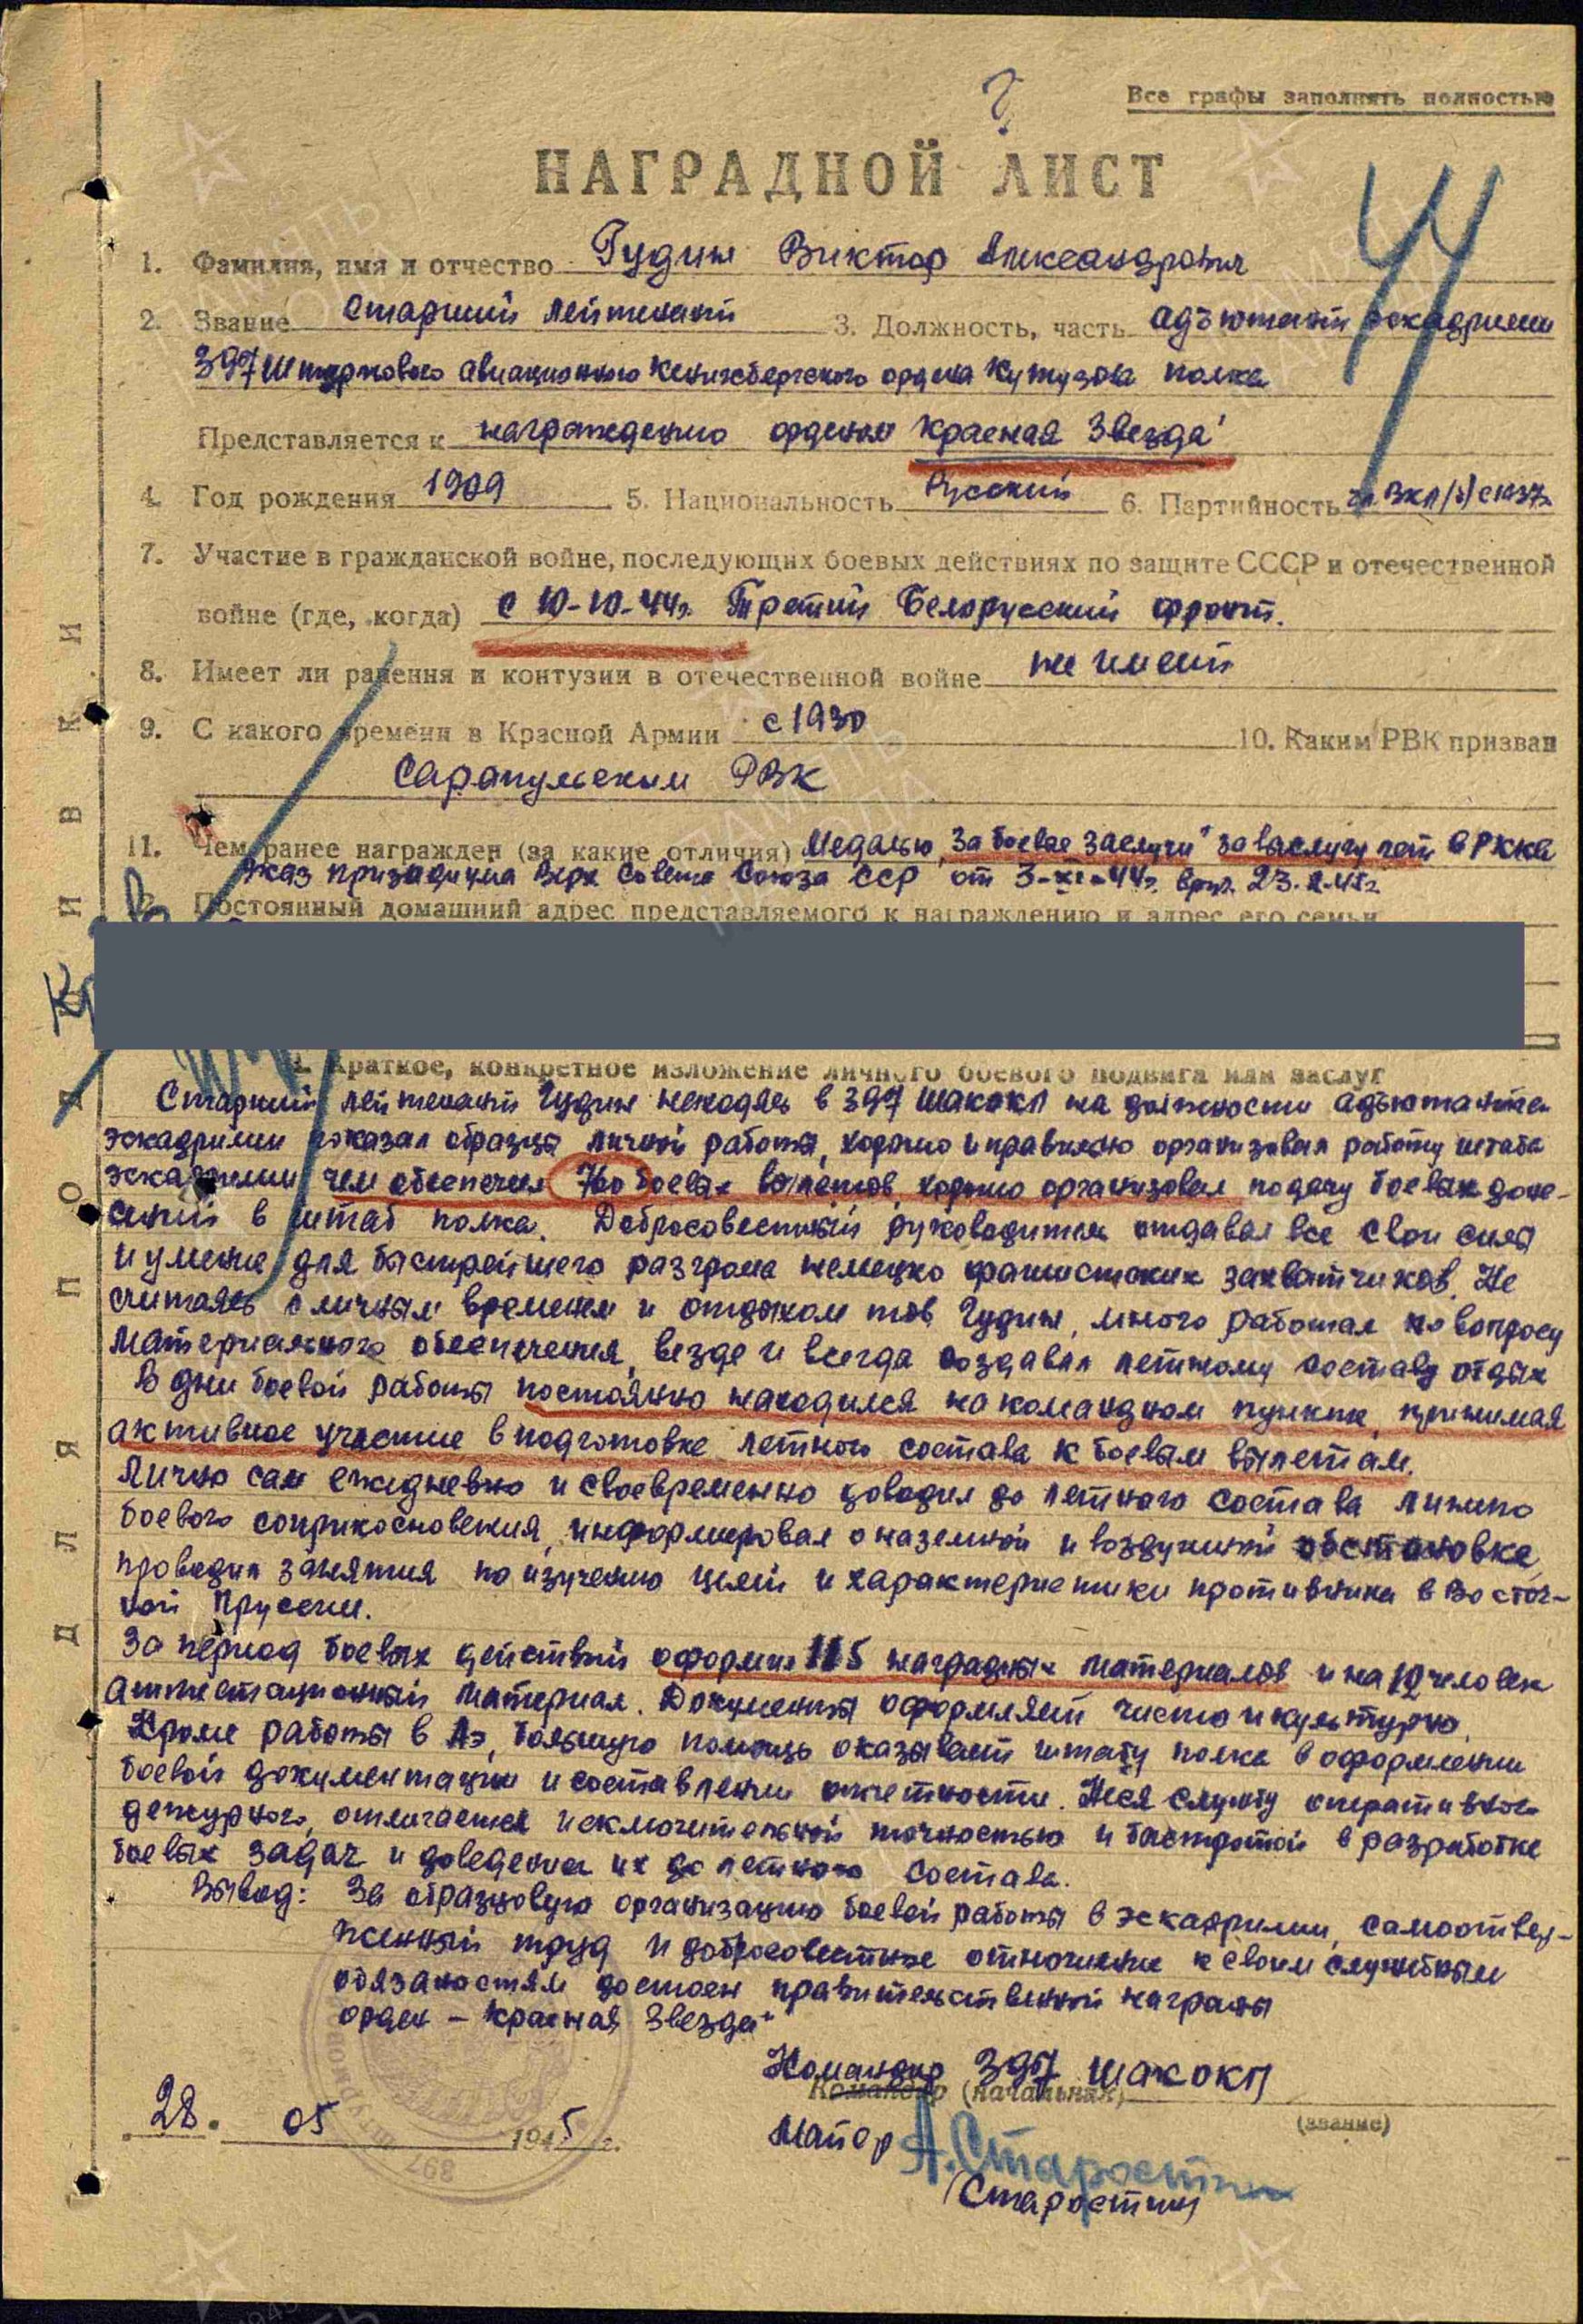 Все графы заполнять полностью
НАГРАДНОЙ ЛИСТ
44
1. Фамилия, имя и отчество Гудин Виктор Александрович
2. Звание Старший лейтенант 3. Должность, часть адъютант эскадрилии
397 Штурмового авиационного Кенигсбергского ордена Кутузова полка
Представляется к награждению орденом "Красная Звезда"
4. Год рождения 1909 5. Национальность Русский 6. Партийность чл. ВКП/б/ с 1937г.
7. Участие в гражданской войне, последующих боевых действиях по защите СССР и отечественной
войне (где, когда) с 10-10-44г. Третий Белорусский фронт.
8. Имеет ли ранения и контузии в отечественной войне не имеет
9. С какого времени в Красной Армии с 1930 10. Каким РВК призван
Сарапульским РВК
11. Чем ранее награжден (за какие отличия) Медалью "За боевые заслуги" за выслугу лет в РККА
Указ призидиума Верх Совета Союза ССР от 3-XI-44г. вруч. 23.2.45г.
Постоянный домашний адрес представляемого к награждению и адрес его семьи
Краткое, конкретное изложение личного боевого подвига или заслуг
Старший лейтенант Гудин находясь в 397 ШАКОКП на должности адъютанта
эскадрилии показал образцы личной работы, хорошо и правильно организовал работу штаба
эскадрилии чем обеспечил 760 боевых вылетов, хорошо организовал подачу боевых доне-
сений в штаб полка. Добросовестный руководитель отдавал все свои силы
и умение для быстрейшего разгрома немецко фашистских захватчиков. Не
считаясь с личным временем и отдыхом тов. Гудин, много работал по вопросу
материального обеспечения, везде и всегда создавал летному составу отдых
В дни боевой работы постоянно находился на командном пункте, принимая
активное участие в подготовке летного состава к боевым вылетам.
Лично сам ежедневно и своевременно доводил до летного состава линию
боевого соприкосновения, информировал о наземной и воздушной обстановке,
проводил занятия по изучению целей и характеристики противника в Восточ-
ной Пруссии.
За период боевых действий оформил 115 наградных материалов и на 12 человек
аттестационный материал. Документы оформляет чисто и культурно.
Кроме работы в АЭ, большую помощь оказывает штабу полка в оформлении
боевой документации и составлении отчетности. Неся службу оперативного
дежурного, отличается исключительной точностью и быстротой в разработке
боевых задач и доведения их до летного состава.
Вывод: За образцовую организацию боевой работы в эскадрилии, самоотвер-
женный труд и добросовестное отношение к своим служебным
обязаностям достоен правительственной награды
орден – Красная Звезда"
Командир 397 ШАКОКП
Командир (начальник)
(звание)
28. 05 1945 г.
Майор А.Старостин
/Старостин/
ДЛЯ ПОДШИВКИ
397
ПАМЯТЬ НАРОДА